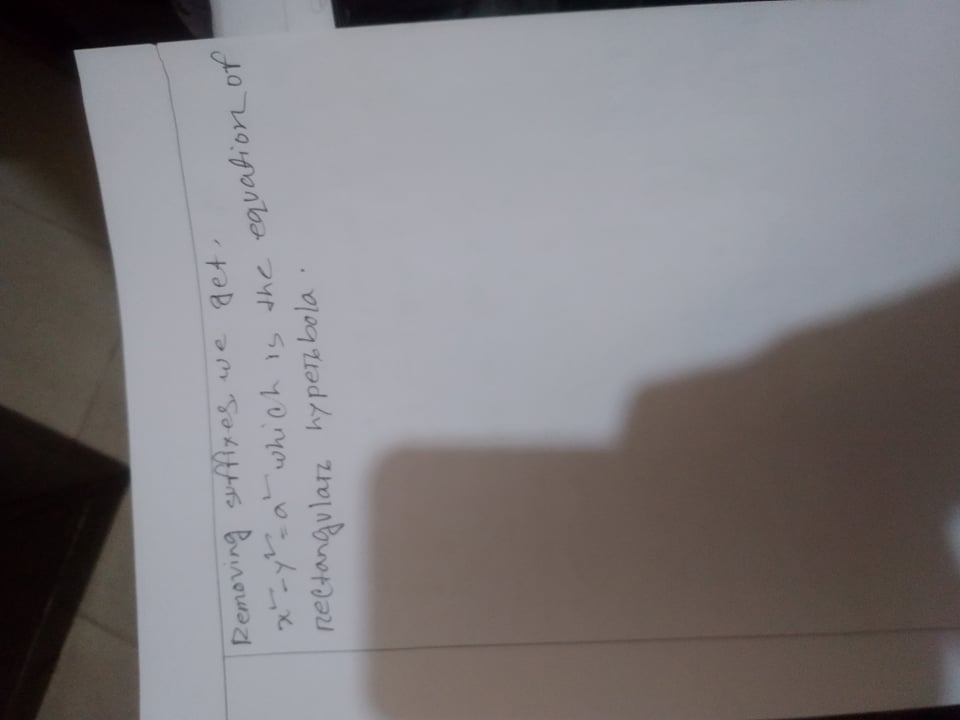 Removing suffixes, we get,
x² - y² = a² which is the equation of
rectangular hyperbola.